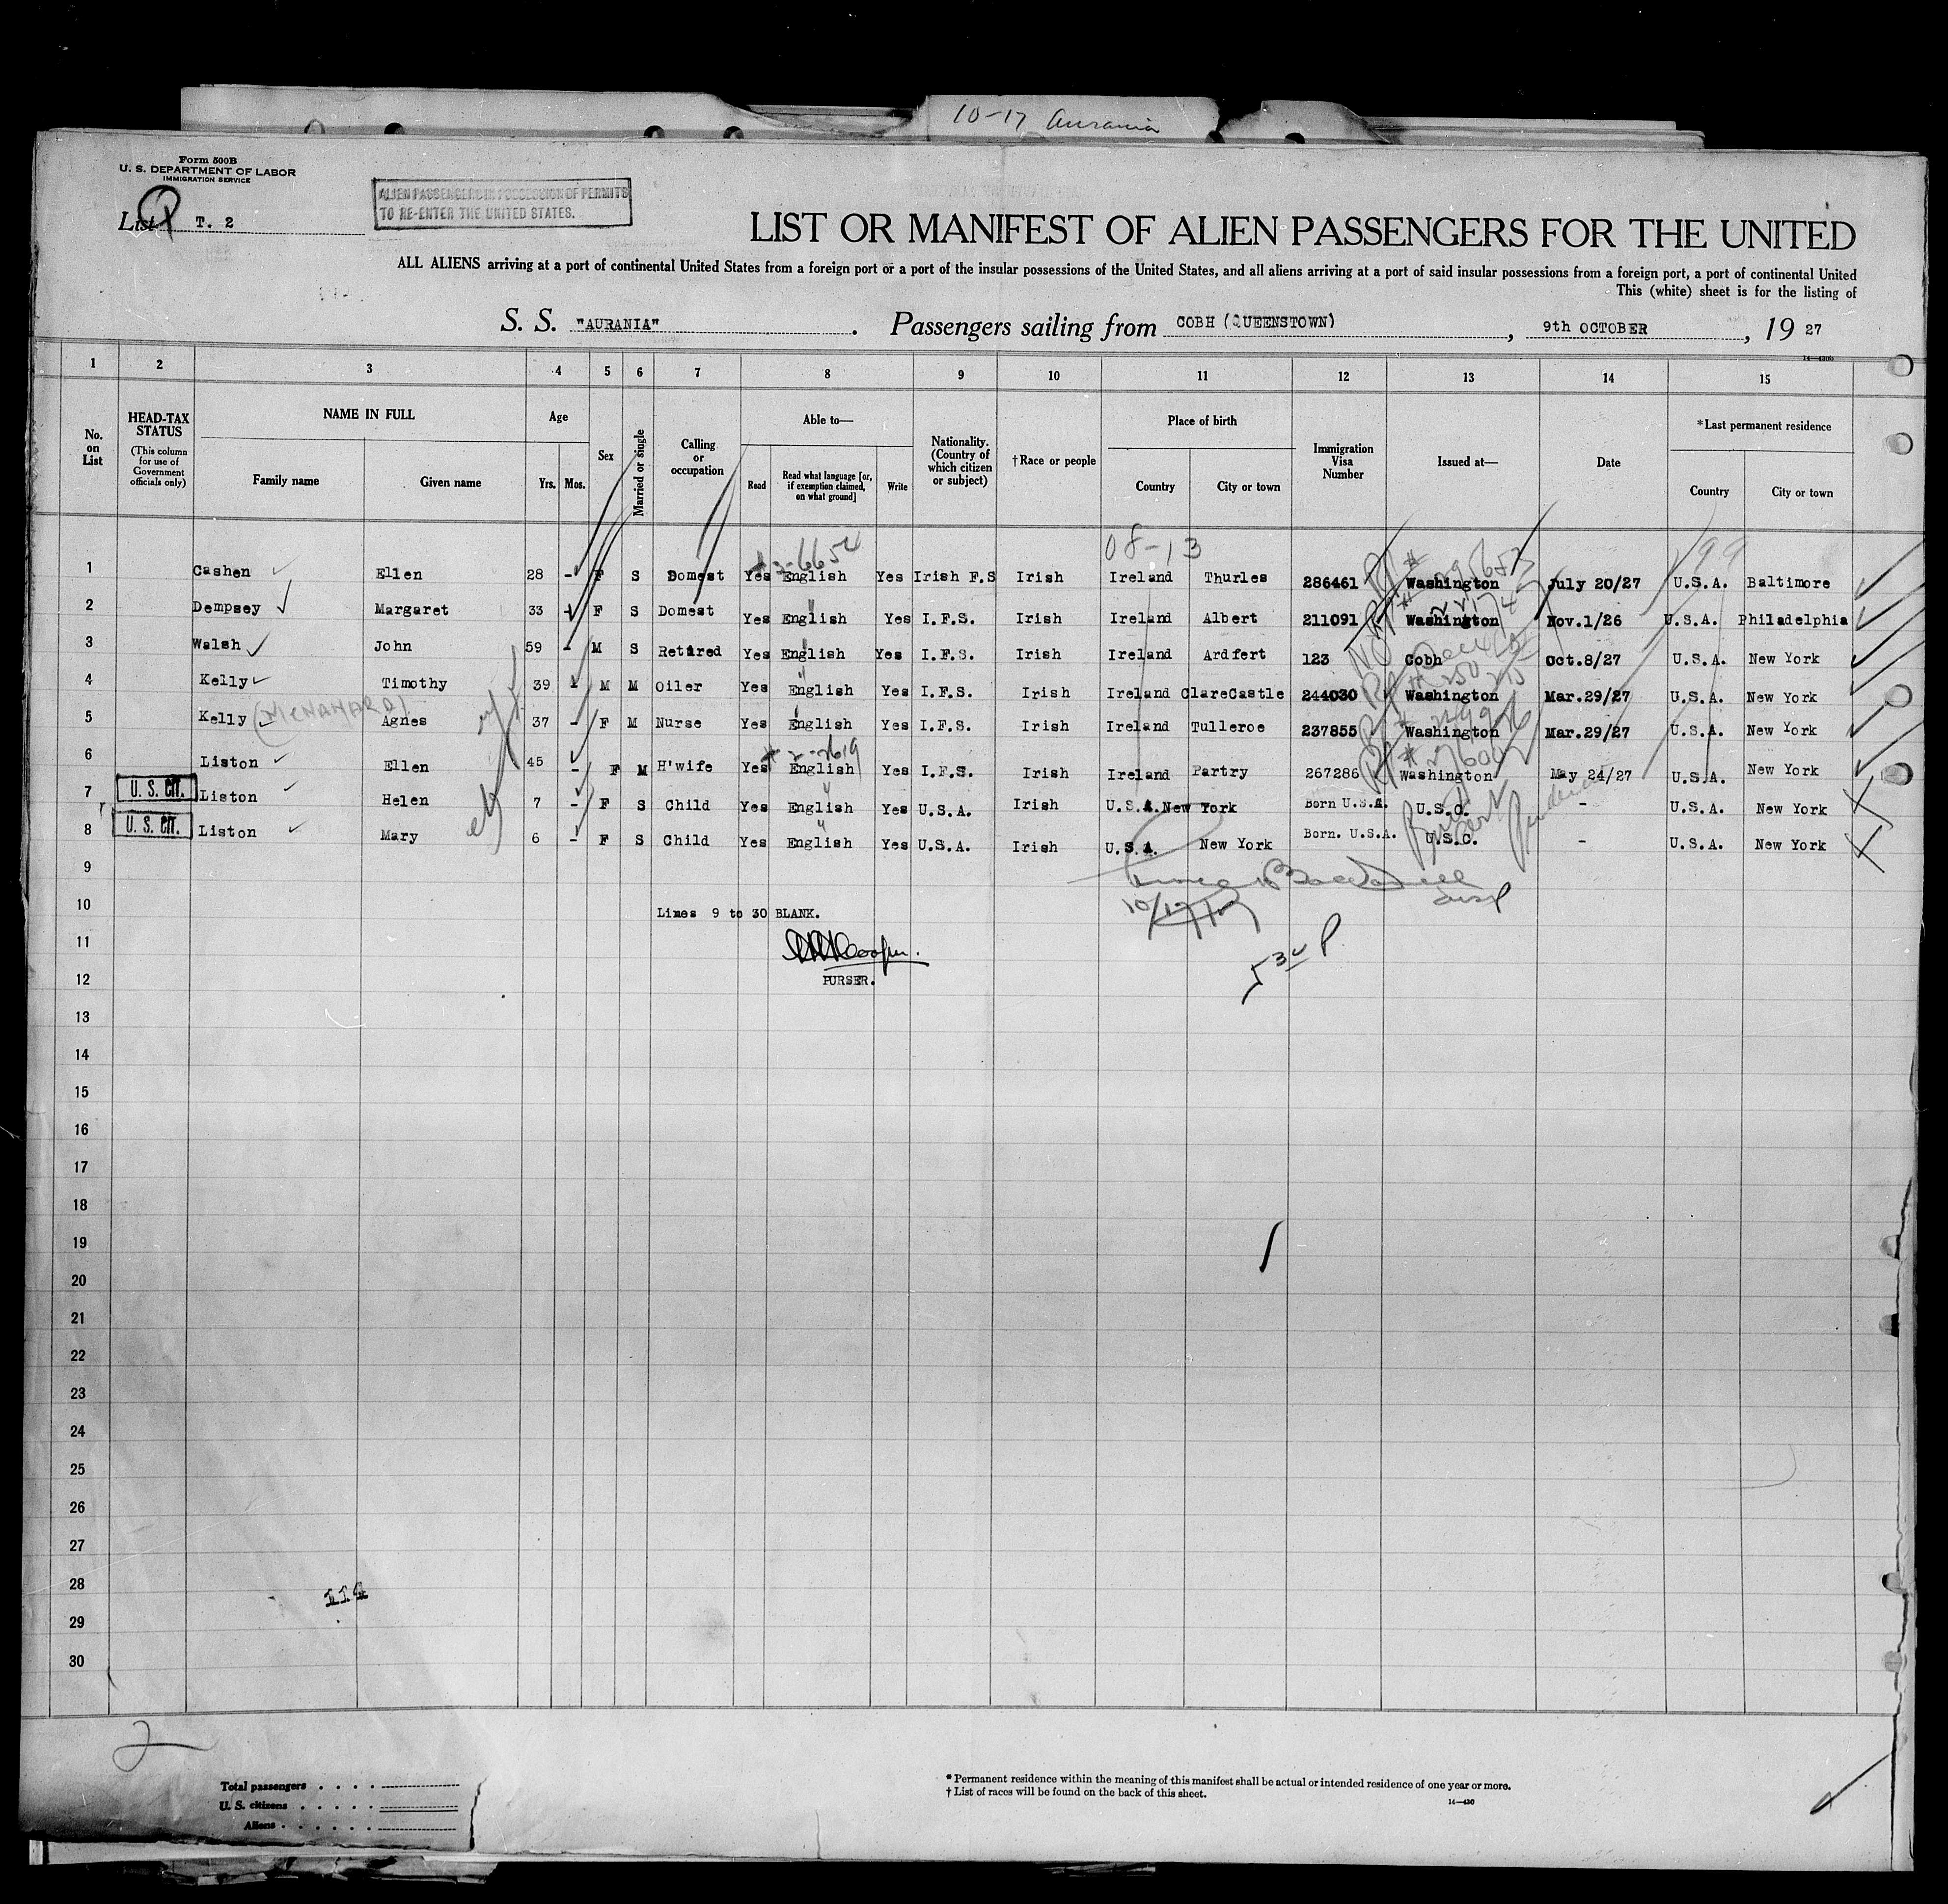 10-17 Aurania
Form 500B
U. S. DEPARTMENT OF LABOR
IMMIGRATION SERVICE
List T. 2
ALIEN PASSENGERS IN POSSESSION OF PERMITS
TO RE-ENTER THE UNITED STATES.
LIST OR MANIFEST OF ALIEN PASSENGERS FOR THE UNITED
ALL ALIENS arriving at a port of continental United States from a foreign port or a port of the insular possessions of the United States, and all aliens arriving at a port of said insular possessions from a foreign port, a port of continental United
This (white) sheet is for the listing of
S. S. "AURANIA". Passengers sailing from COBH (QUEENSTOWN), 9th OCTOBER, 19 27
1 2 3 4 5 6 7 8 9 10 11 12 13 14 15
No. on List
HEAD-TAX STATUS
(This column for use of Government officials only)
NAME IN FULL
Family name Given name
Age
Yrs. Mos.
Sex
Married or single
Calling or occupation
Able to—
Read
Read what language [or, if exemption claimed, on what ground]
Write
Nationality. (Country of which citizen or subject)
†Race or people
Place of birth
Country City or town
Immigration Visa Number
Issued at—
Date
*Last permanent residence
Country City or town
08-13
1 Cashen Ellen 28 - F S Domest Yes English Yes Irish F.S Irish Ireland Thurles 286461 Washington July 20/27 U.S.A. Baltimore
2 Dempsey Margaret 33 - F S Domest Yes English Yes I.F.S. Irish Ireland Albert 211091 Washington Nov.1/26 U.S.A. Philadelphia
3 Walsh John 59 - M S Retired Yes English Yes I.F.S. Irish Ireland Ardfert 123 Cobh Oct.8/27 U.S.A. New York
4 Kelly Timothy 39 - M M Oiler Yes English Yes I.F.S. Irish Ireland ClareCastle 244030 Washington Mar.29/27 U.S.A. New York
5 Kelly (McNAMARA) Agnes 37 - F M Nurse Yes English Yes I.F.S. Irish Ireland Tulleroe 237855 Washington Mar.29/27 U.S.A. New York
6 Liston Ellen 45 - F M H'wife Yes English Yes I.F.S. Irish Ireland Partry 267286 Washington May 24/27 U.S.A. New York
7 U. S. CIT. Liston Helen 7 - F S Child Yes English Yes U.S.A. Irish U.S.A. New York Born U.S.A. U.S.C. - U.S.A. New York
8 U. S. CIT. Liston Mary 6 - F S Child Yes English Yes U.S.A. Irish U.S.A. New York Born. U.S.A. U.S.C. - U.S.A. New York
9
10 Lines 9 to 30 BLANK.
11
12 PURSER.
5 30 P
13
14
15
16
17
18
19
20
21
22
23
24
25
26
27
28 114
29
30
2
Total passengers
U. S. citizens
Aliens
* Permanent residence within the meaning of this manifest shall be actual or intended residence of one year or more.
† List of races will be found on the back of this sheet.
14—430